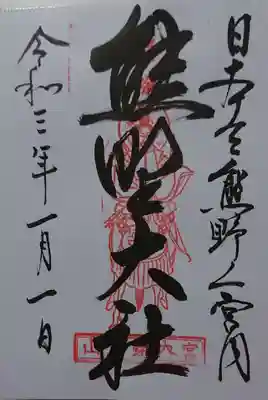 日本三熊野 宮内
熊野大社
令和三年一月一日